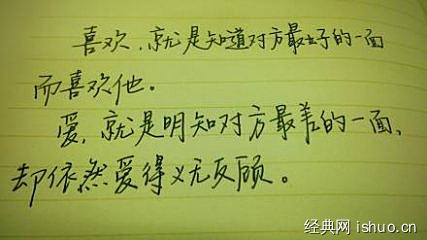 喜欢、就是知道对方最好的一面
而喜欢他。
爱、就是明知对方最差的一面、
却依然爱得义无反顾。
经典网 ishuo.cn